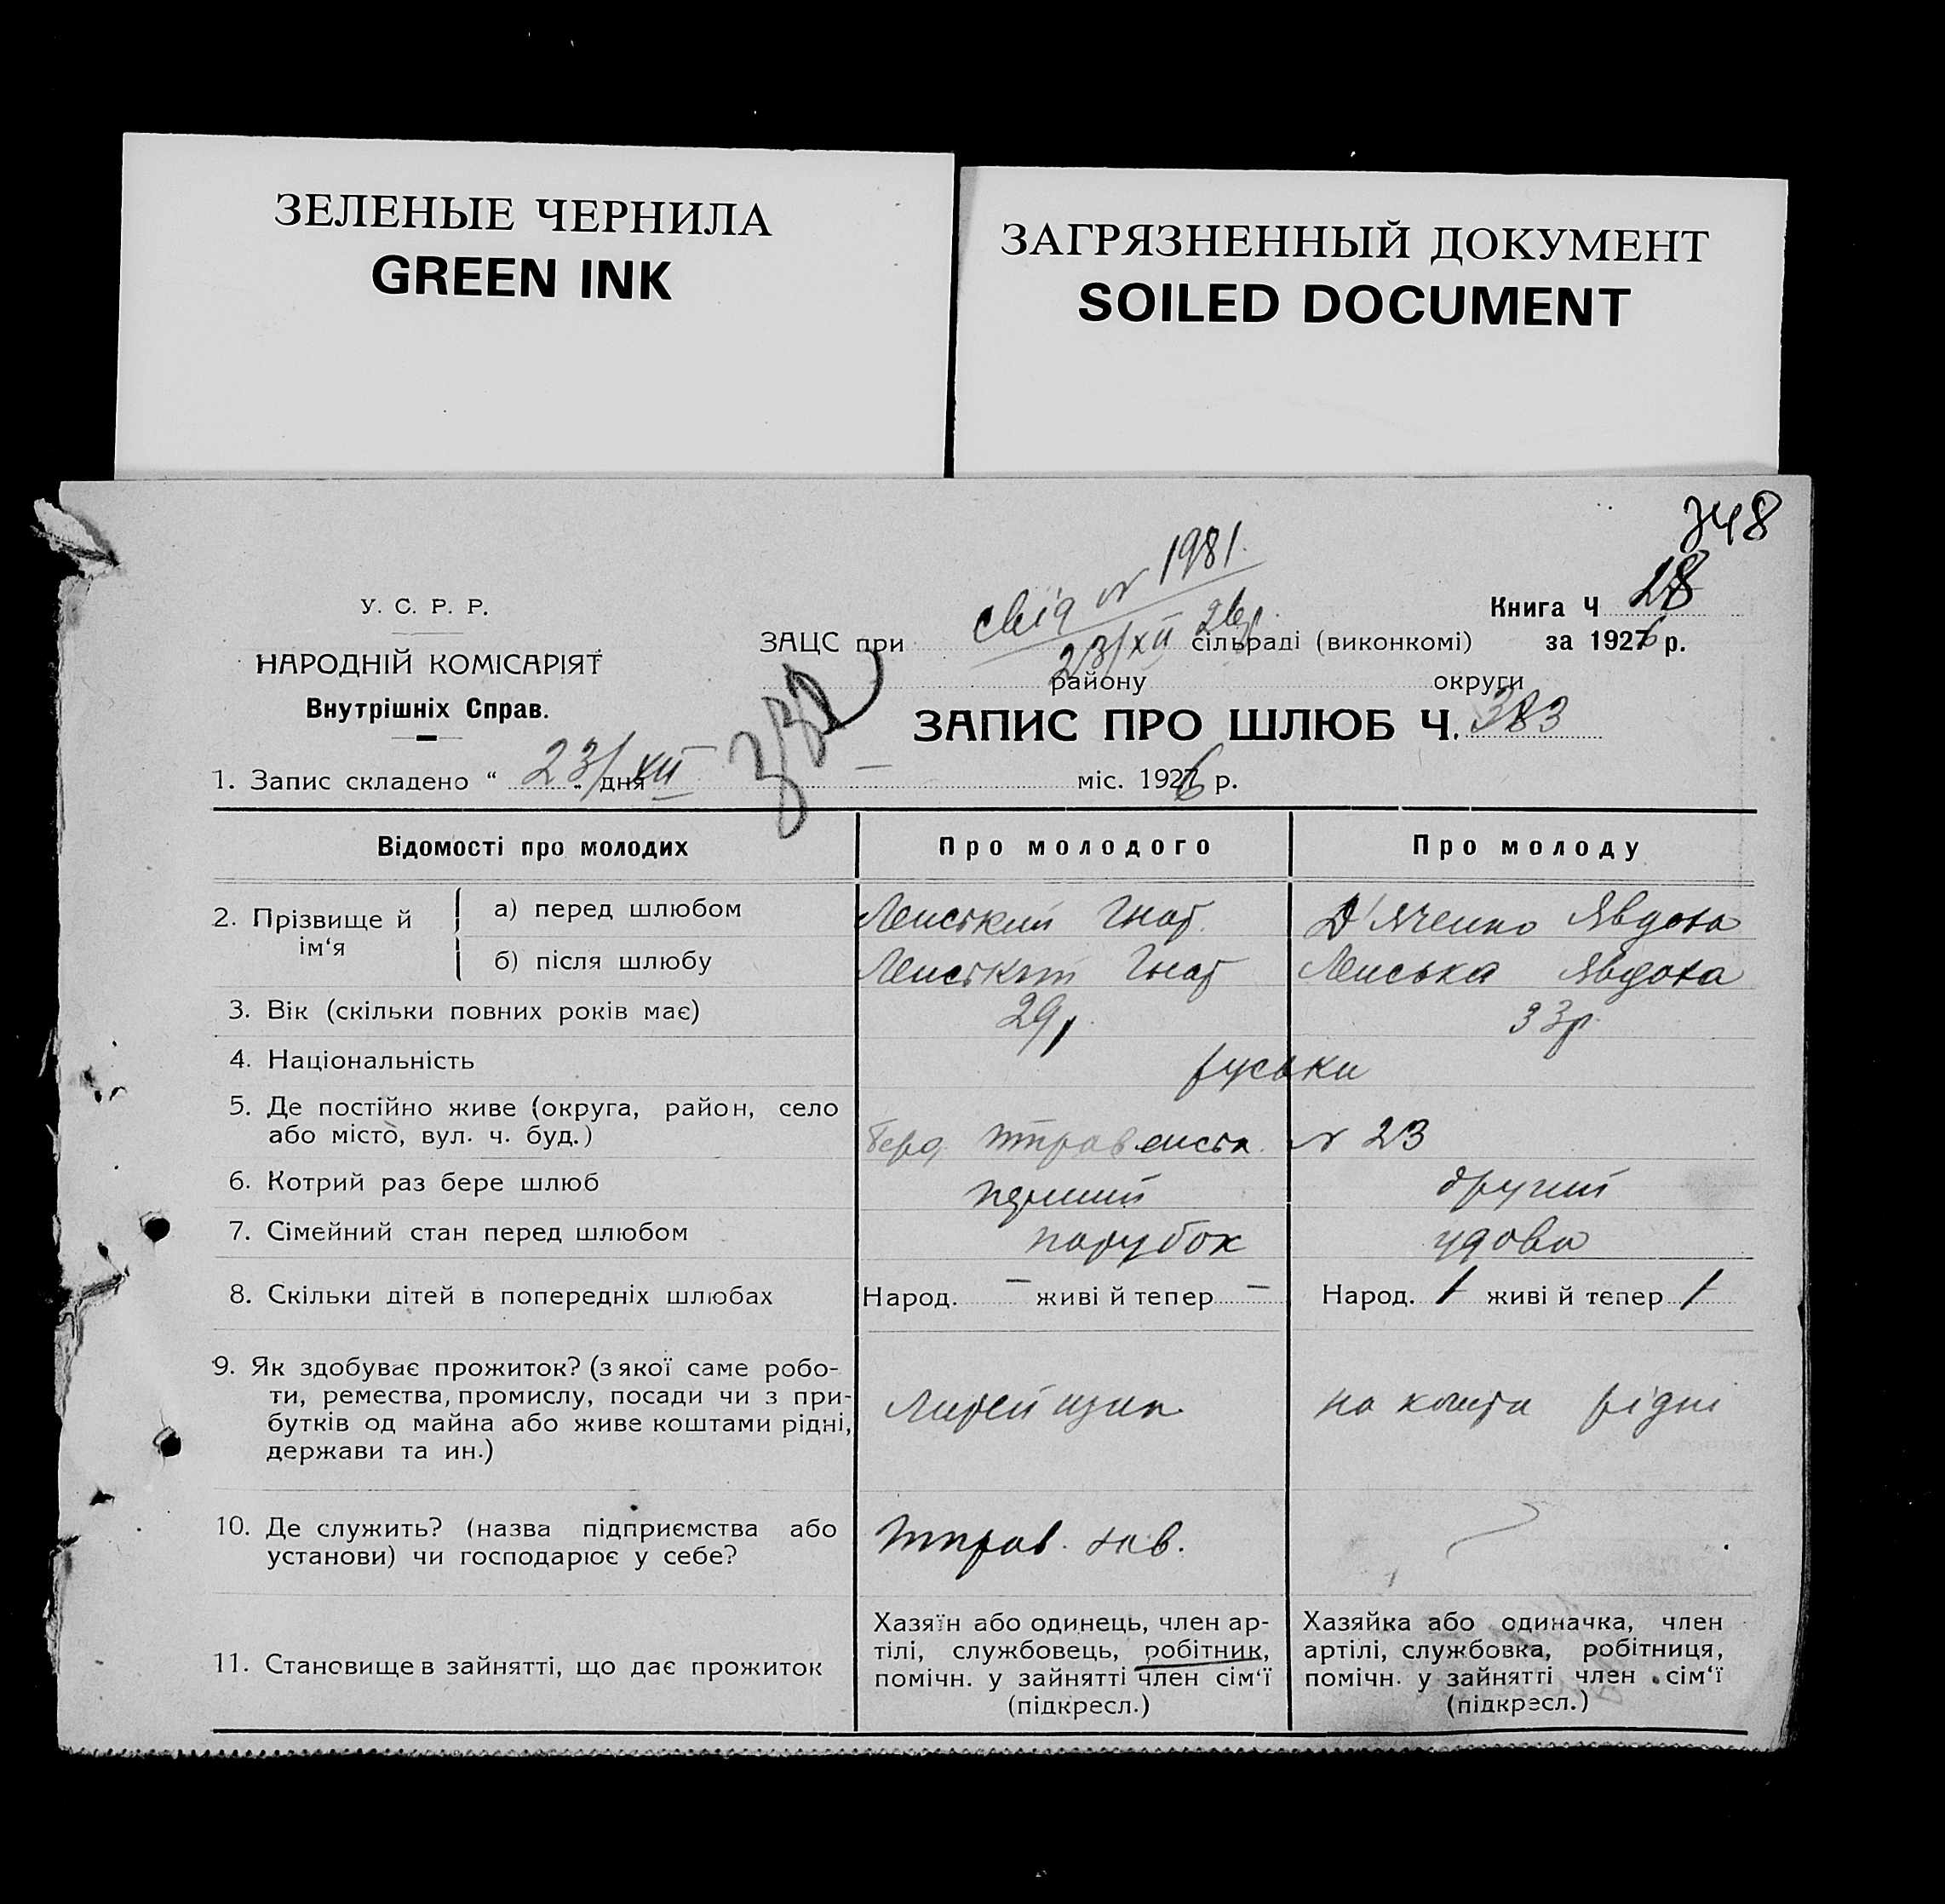 ЗЕЛЕНЫЕ ЧЕРНИЛА
GREEN INK
ЗАГРЯЗНЕННЫЙ ДОКУМЕНТ
SOILED DOCUMENT
348
У. С. Р. Р.
НАРОДНІЙ КОМІСАРІЯТ
Внутрішніх Справ.
свід № 1981.
23/XII 26р.
Книга Ч 18
ЗАЦС при сільраді (виконкомі) за 1926 р.
району округи
382
ЗАПИС ПРО ШЛЮБ Ч. 383
1. Запис складено “ 23/XII дня — міс. 1926 р.
Відомості про молодих Про молодого Про молоду
2. Прізвище й ім‘я
а) перед шлюбом Ленський Гнат. Д'яченко Явдоха
б) після шлюбу Ленський Гнат Ленська Явдоха
3. Вік (скільки повних років має) 29р. 33р.
4. Національність руськи
5. Де постійно живе (округа, район, село
або місто, вул. ч. буд.) № 23
6. Котрий раз бере шлюб перший другий
7. Сімейний стан перед шлюбом парубок удова
8. Скільки дітей в попередніх шлюбах Народ. – живі й тепер – Народ. 1 живі й тепер 1
9. Як здобуває прожиток? (з якої саме робо-
ти, ремества, промислу, посади чи з при-
бутків од майна або живе коштами рідні,
держави та ин.)
Литейщик на кошти рідні
10. Де служить? (назва підприємства або
установи) чи господарює у себе?
11. Становище в зайнятті, що дає прожиток
Хазяїн або одинець, член ар-
тілі, службовець, робітник,
помічн. у зайнятті член сім‘ї
(підкресл.)
Хазяйка або одиначка, член
артілі, службовка, робітниця,
помічн. у зайнятті член сім‘ї
(підкресл.)